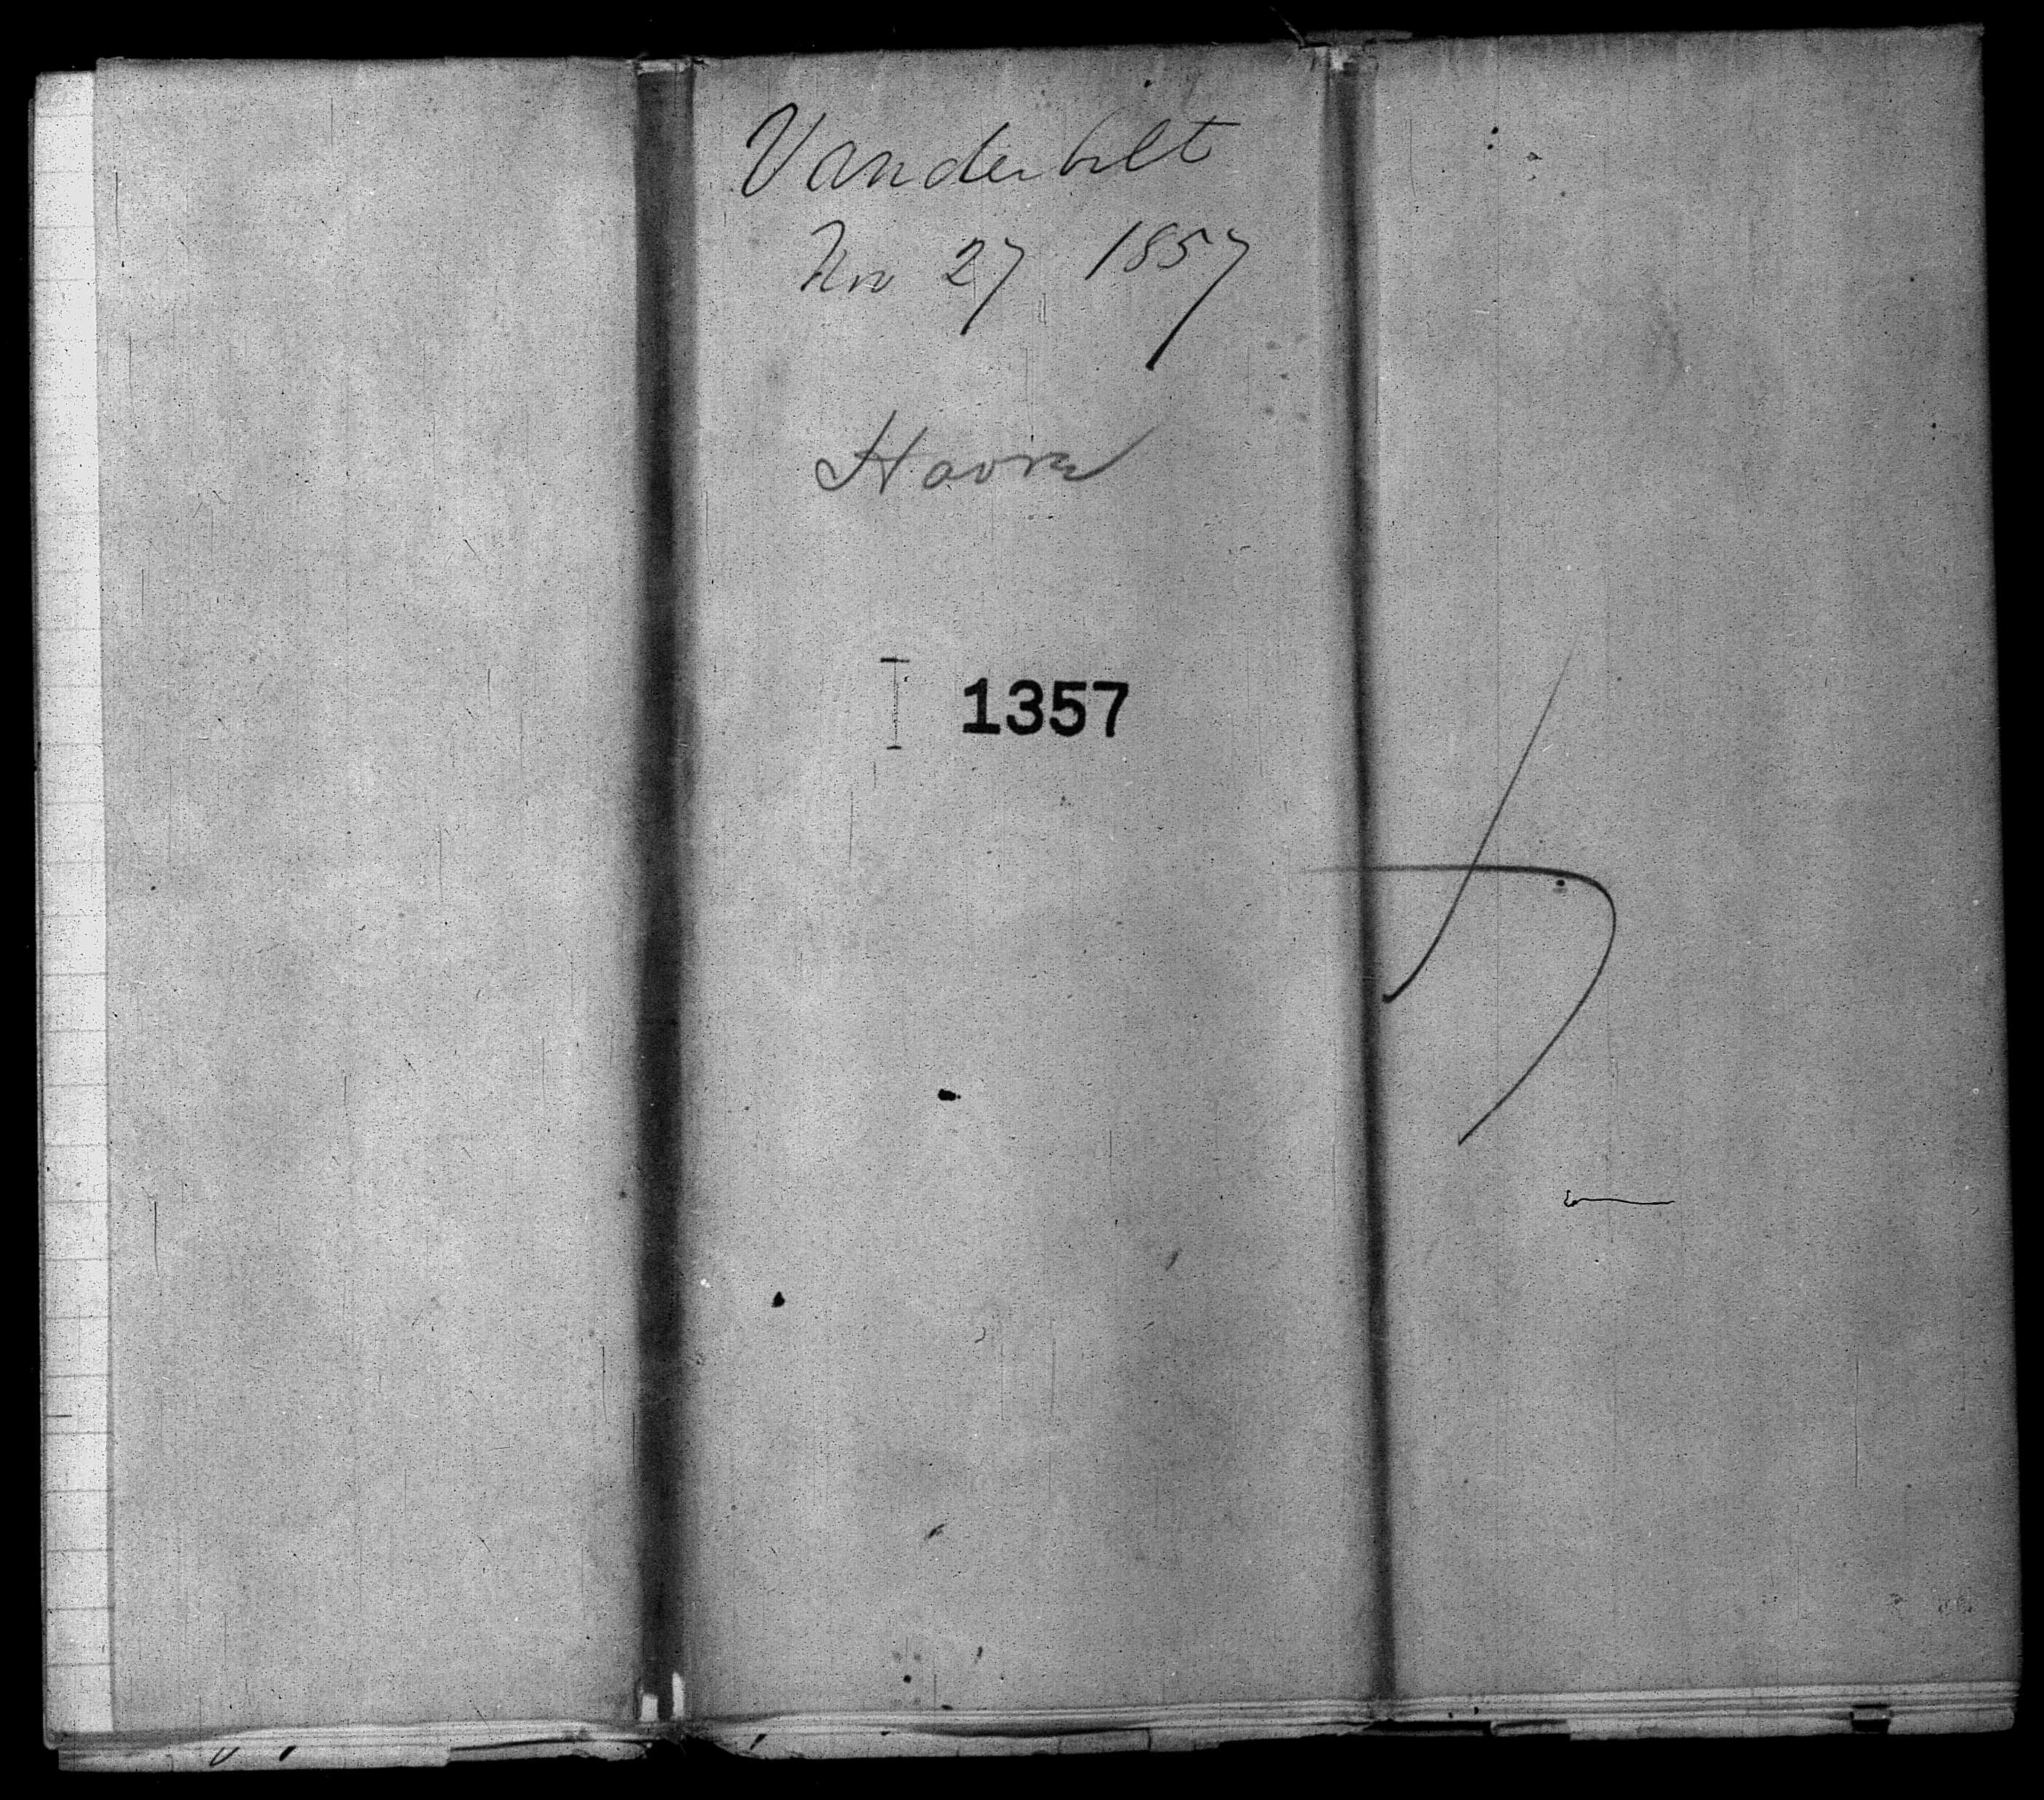 Vanderbilt
Nov 27 1857
Havre
1357